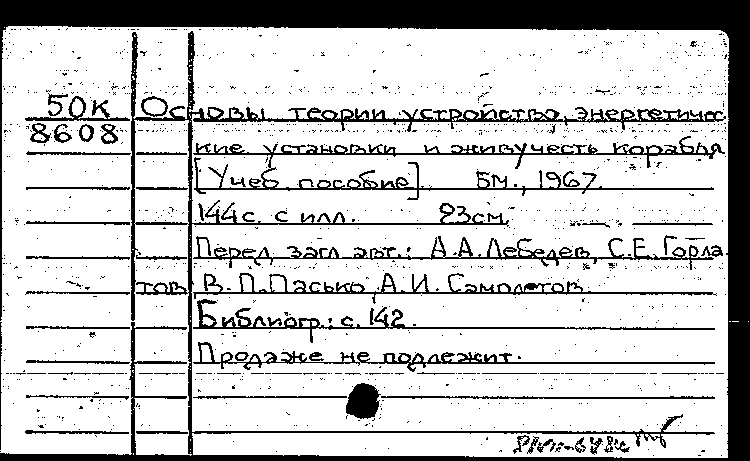 50К Основы теории, устройство, энергетичес
8608
кие установки и живучесть корабля
[Учеб. пособие]. БМ., 1967.
144с. с илл. 23см.
Перед загл. авт.: А.А.Лебедев, С.Е.Горла
тов В.П.Пасько, А.И.Самолетов.
Библиогр.: с.142.
Продаже не подлежит.